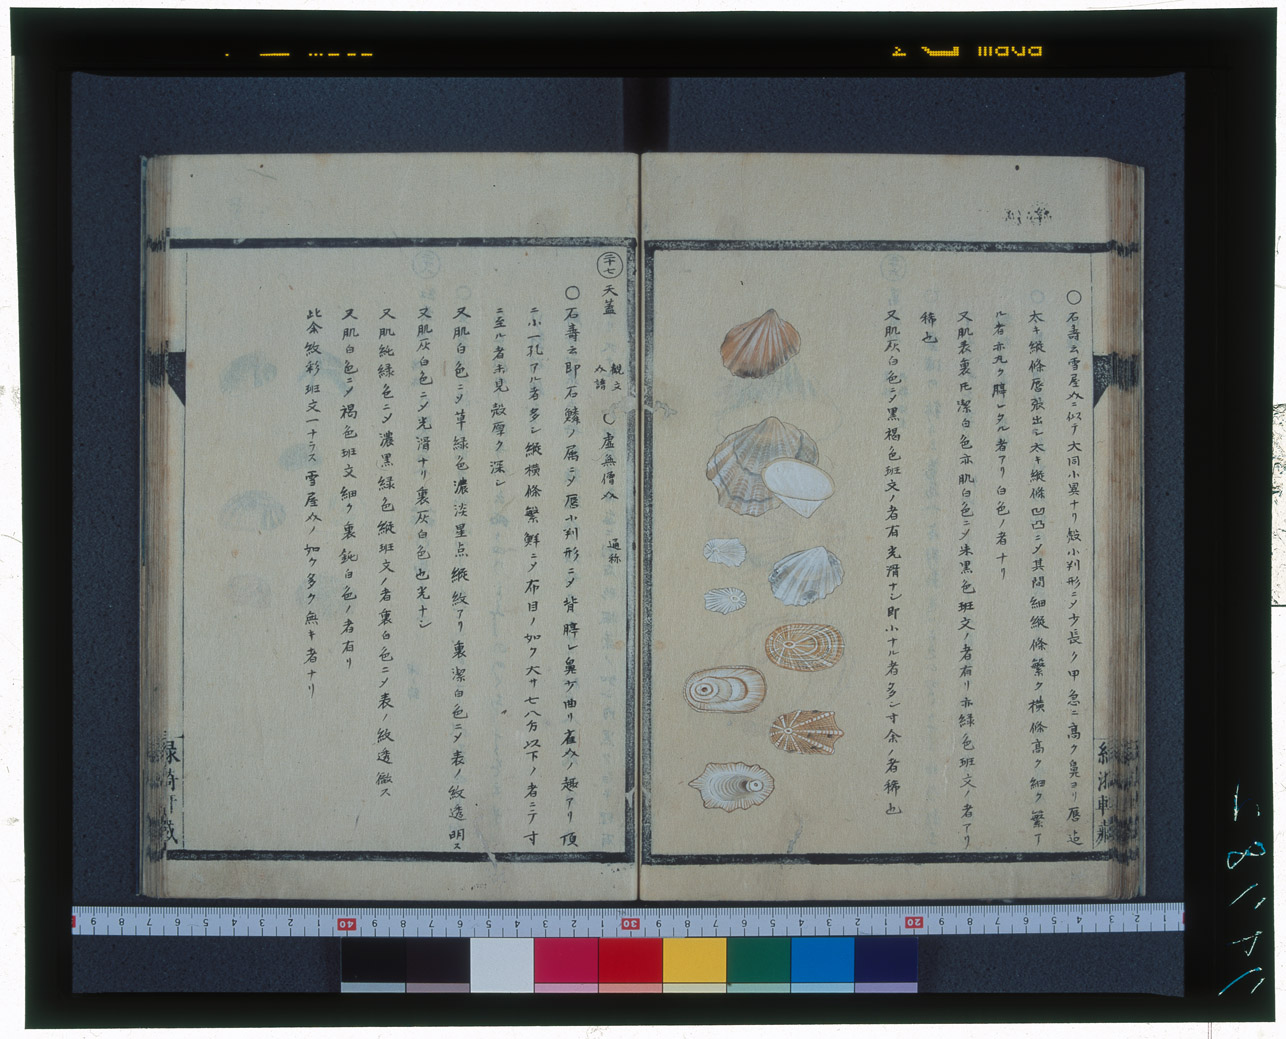 ○石寿云雪屋介ニ似テ大同小異ナリ殻小判形ニメ少長ク甲急ニ高ク鼻ヨリ唇迠
太キ縦條唇張出シ太キ縦條凹凸ニメ其間細縦條繁ク横條高ク細ク繁ア
ル者亦丸ク膵レタル者アリ白色ノ者ナリ
又肌表裏圧潔白色亦肌白色ニメ朱黒色班文ノ者有リ亦緑色班文ノ者アリ
稀也
又肌灰白色ニメ黒褐色班文ノ者有光滑ナシ即小ナル者多シ寸余ノ者稀也
二十七 天蓋 観文介譜 虚無僧介 通称
○石寿云即石鱗ノ属ニメ唇小判形ニメ背膵レ鼻サ曲リ雀介ノ趣アリ頂
ニ小一孔アル者多シ縦横條繁鮮ニメ布目ノ如ク大サ七八分以下ノ者ニテ寸
ニ至ル者未見殻厚ク深シ
又肌白色ニメ草緑色濃淡星点縦紋アリ裏潔白色ニメ表ノ紋透明ス
又肌灰白色ニメ光滑ナリ裏灰白色也光ナシ
又肌純緑色ニメ濃黒緑色縦班文ノ者裏白色ニメ表ノ紋透徹ス
又肌白色ニメ褐色班文細ク裏鈍白色ノ者有リ
此余紋彩班文一ナラス雪屋介ノ如ク多ク無キ者ナリ